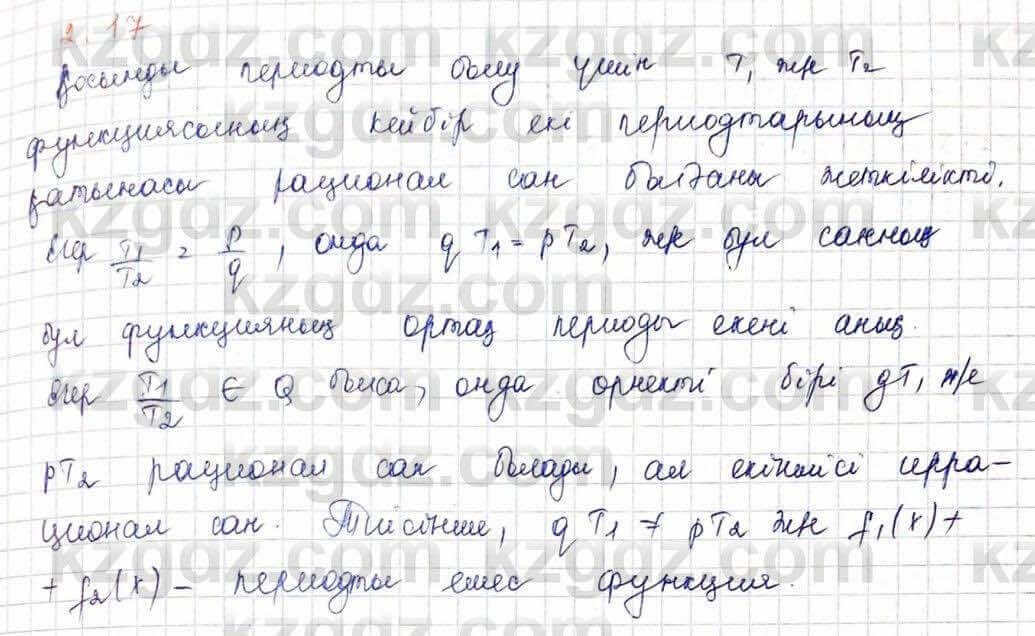 2.17
Қосынды периодты болу үшін T₁ ж/е T₂
функциясының кейбір екі периодтарының
қатынасы рационал сан болғаны жеткілікті.
Егер T₁/T₂ = p/q, онда q T₁ = pT₂, ж/е бұл санның
бұл функцияның ортақ периоды екені анық.
Егер T₁/T₂ ∈ Q болса, онда өрнектің бірі qT₁ ж/е
pT₂ рационал сан болады, ал екіншісі ирра-
ционал сан. Тиісінше, q T₁ ≠ pT₂ ж/е f₁(x) +
+ f₂(x) – периодты емес функция.
kzgdz.com